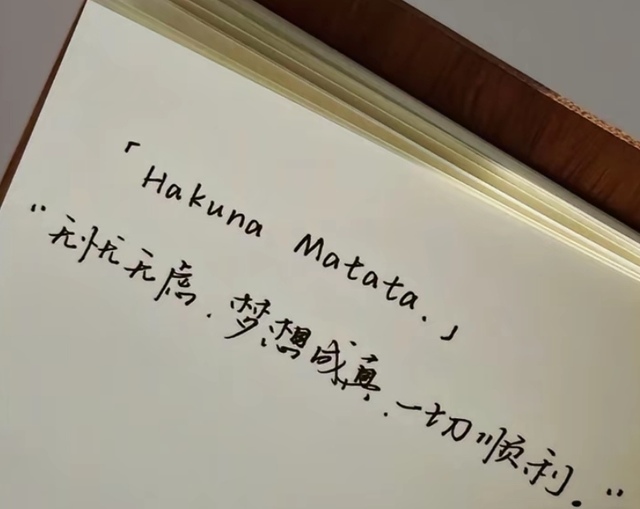 「Hakuna Matata.」
"无忧无虑.梦想成真.一切顺利."